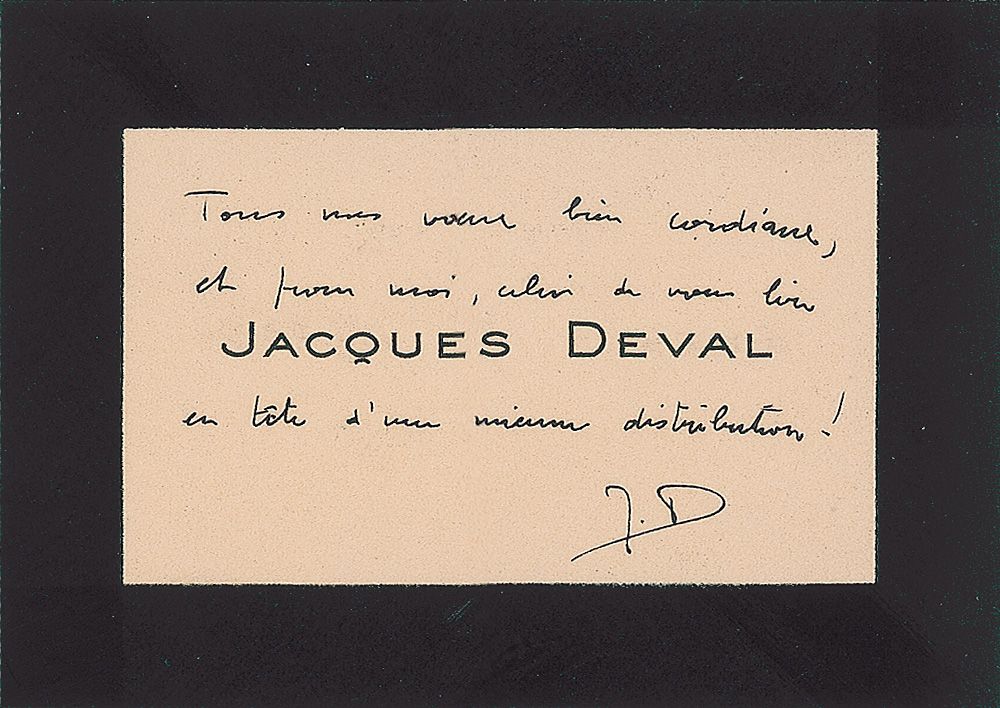 Tous mes vœux bien cordiaux,
et pour moi, celui de vous lire
JACQUES DEVAL
en tête d'une mienne distribution !
J. D